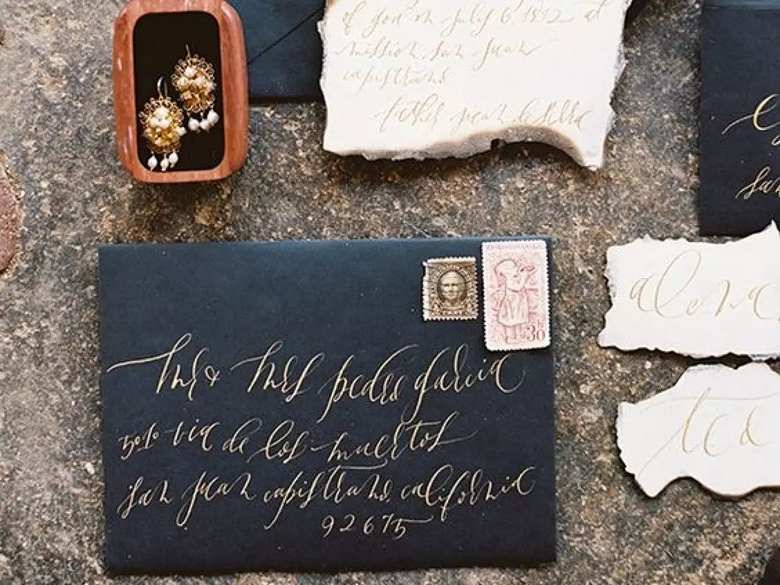 of god on july 6 1812 at
mission san juan
capistrano
father juan de
mr & mrs pedro garcia
5010 via de los muertos
san juan capistrano, california
92675
30
san
ted